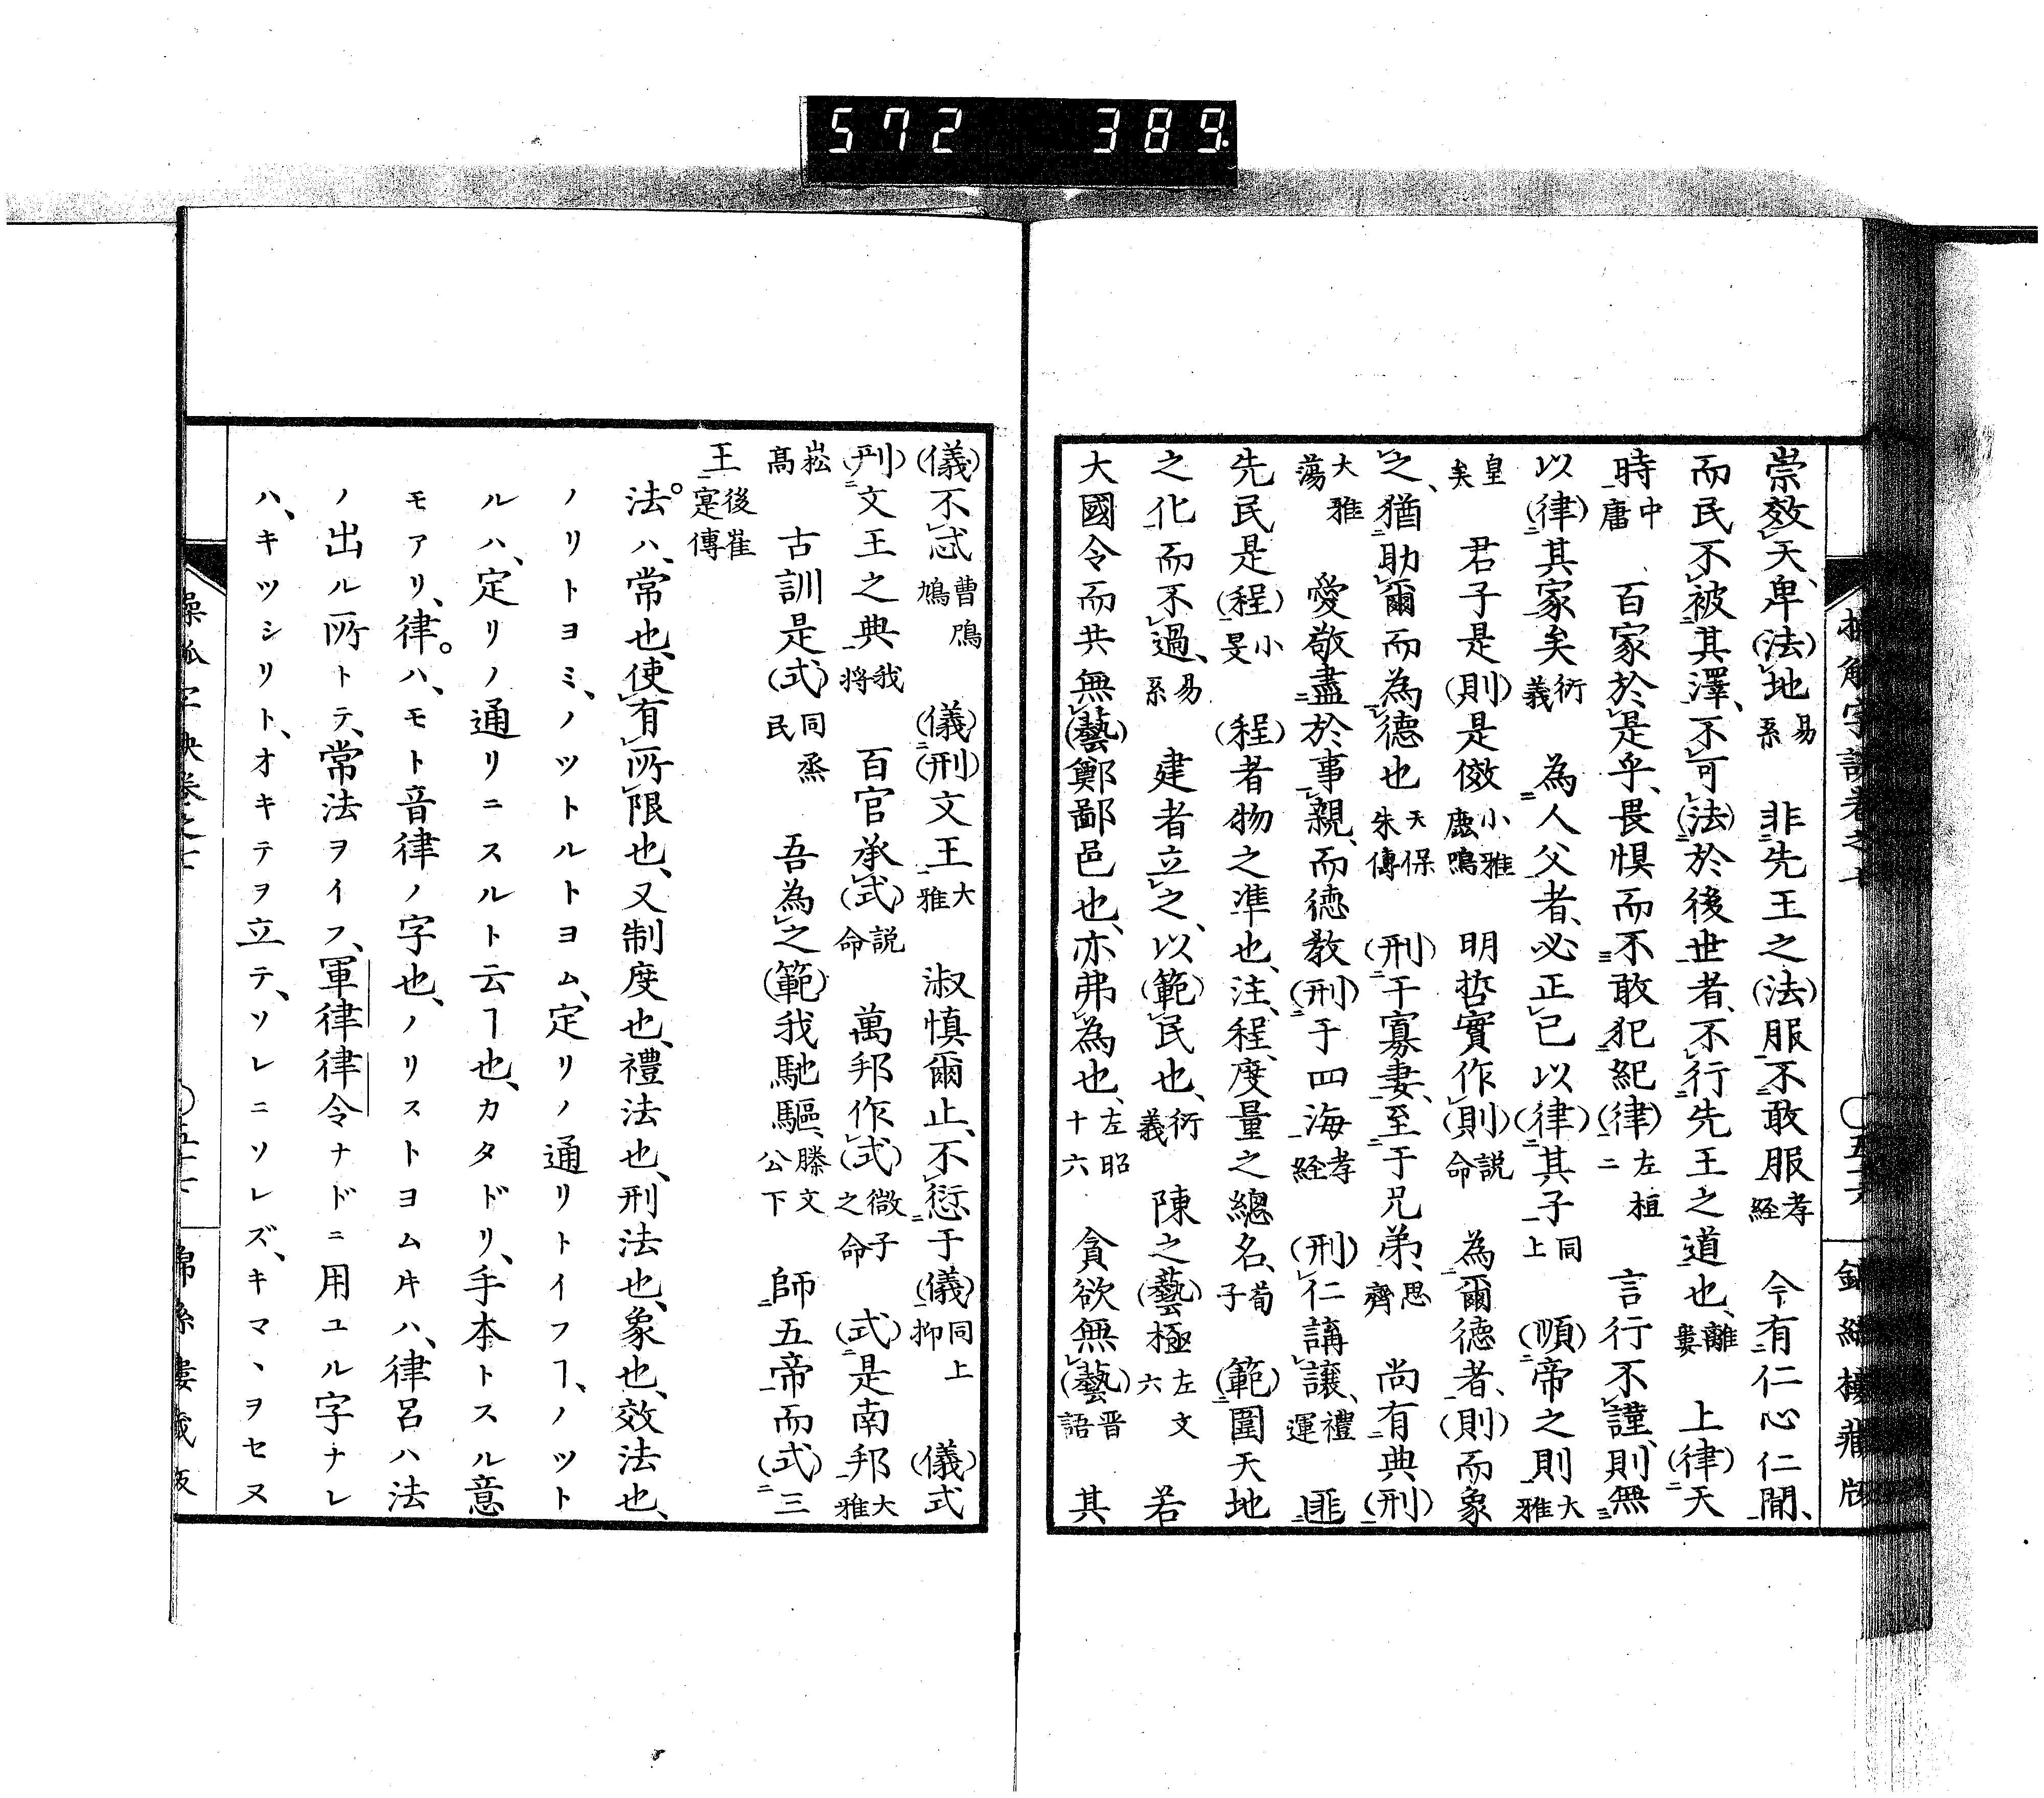 572 389
崇效天、卑(法)地易系 非先王之(法)服、不敢服孝経 今有仁心仁聞、
而民不被其澤、不可(法)於後世者、不行先王之道也、離婁 上(律)天
時中庸 百家於是乎、畏惧而不敢犯紀(律)左桓二 言行不謹、則無
以(律)其家矣衍義 為人父者、必正已以(律)其子同上 (順)帝之則大雅
皇矣 君子是(則)是傚小雅鹿鳴 明哲實作(則)説命 為爾徳者、(則)而象
之、猶助爾而為徳也天保朱傳 (刑)于寡妻、至于兄弟、思齊 尚有典(刑)
大雅蕩 愛敬盡於事親、而徳教(刑)于四海孝経 (刑)仁講譲、禮運 匪
先民是(程)小旻 (程)者物之凖也、注、程、度量之總名、荀子 (範)圍天地
之化而不過、易系 建者立之、以(範)民也、衍義 陳之(藝)極左文六 若
大國令而共無(藝)鄭鄙邑也、亦弗為也、左昭十六 貪欲無(藝)晋語 其
(儀)不忒曹鳲鳩 (儀)(刑)文王大雅 淑慎爾止、不愆于(儀)同上抑 (儀)式
(刑)文王之典我将 百官承(式)説命 萬邦作(式)微子之命 (式)是南邦大雅
崧高 古訓是(式)同烝民 吾為之(範)我馳驅、滕文公下 師五帝而(式)三
王後崔寔傳
法。ハ、常也、使有所限也、又制度也、禮法也、刑法也、象也、效法也、
ノリトヨミ、ノツトルトヨム、定リノ通リトイフヿ、ノツト
ルハ、定リノ通リニスルト云ヿ也、カタドリ、手本トスル意
モアリ、律。ハ、モト音律ノ字也、ノリストヨム𪜈ハ、律呂ハ法
ノ出ル所トテ、常法ヲイフ、軍律律令ナドニ用ユル字ナレ
ハ、キツシリト、オキテヲ立テ、ソレニソレズ、キマヽヲセヌ